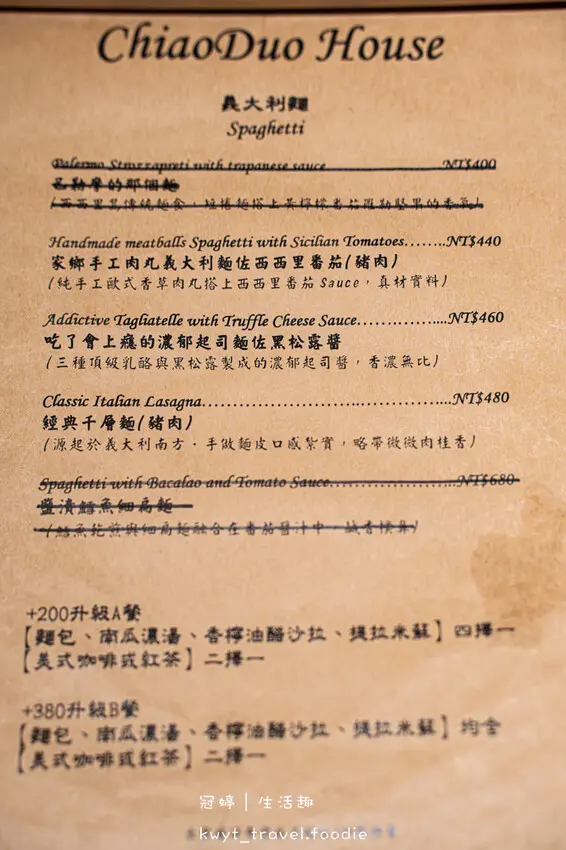 ChiaoDuo House
義大利麵
Spaghetti
Palermo Strozzapreti with trapanese sauce.........................NT$400
巴勒摩的那個麵
Handmade meatballs Spaghetti with Sicilian Tomatoes........NT$440
家鄉手工肉丸義大利麵佐西西里番茄(豬肉)
(純手工歐式香草肉丸搭上西西里番茄Sauce,真材實料)
Addictive Tagliatelle with Truffle Cheese Sauce..............NT$460
吃了會上癮的濃郁起司麵佐黑松露醬
(三種頂級乳酪與黑松露製成的濃郁起司醬,香濃無比)
Classic Italian Lasagna.......................................NT$480
經典千層麵(豬肉)
(源起於義大利南方.手做麵皮口感紮實,略帶微微肉桂香)
Spaghetti with Bacalao and Tomato Sauce......................NT$680
鹽漬鱈魚細扁麵
+200升級A餐
【麵包、南瓜濃湯、香檸油醋沙拉、提拉米蘇】四擇一
【美式咖啡或紅茶】二擇一
+380升級B餐
【麵包、南瓜濃湯、香檸油醋沙拉、提拉米蘇】均含
【美式咖啡或紅茶】二擇一
冠婷|生活趣
kwyt_travel.foodie